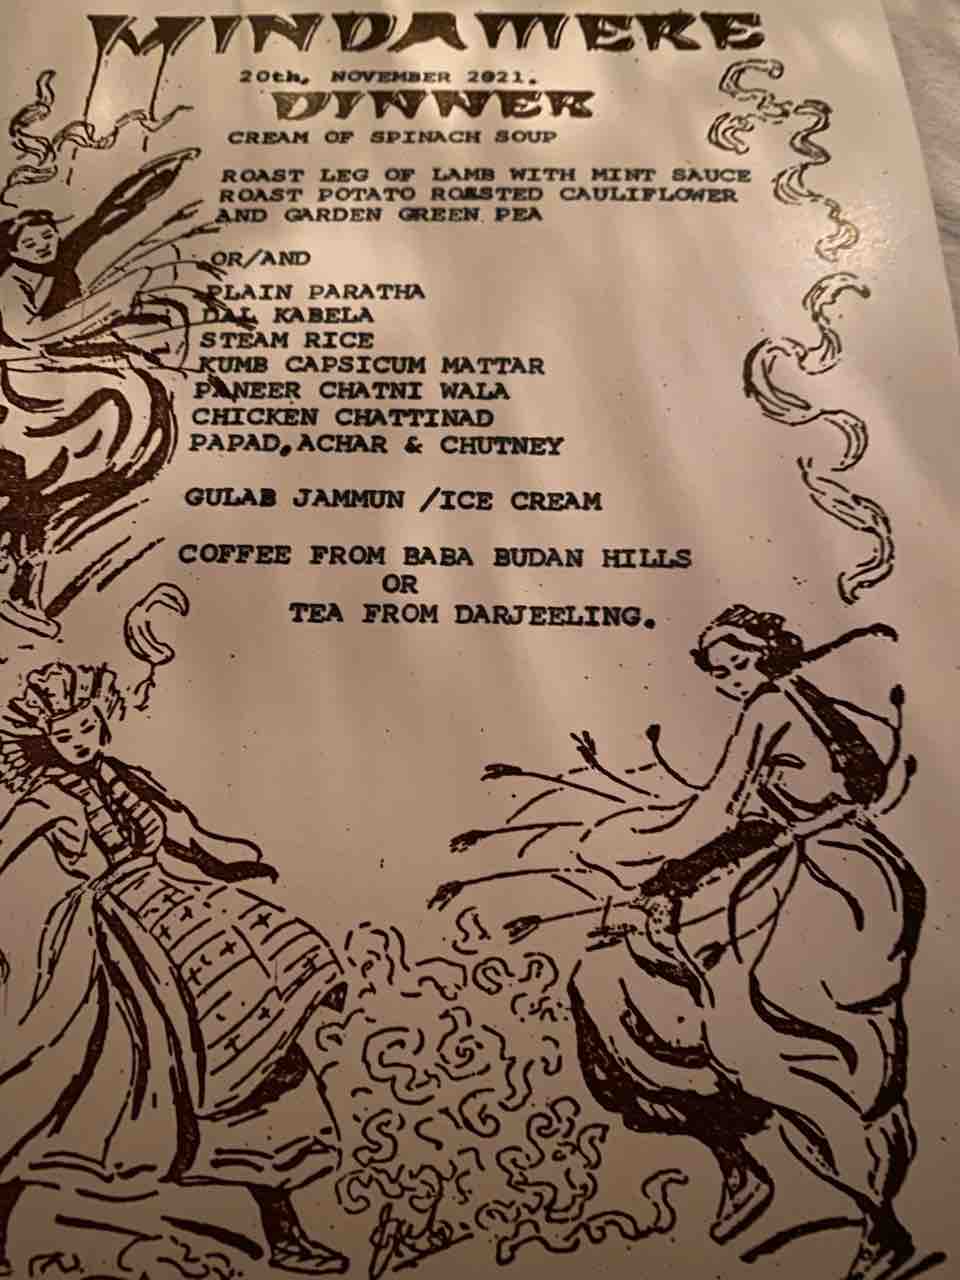 MINDAMERE
20th, NOVEMBER 2021.
DINNER
CREAM OF SPINACH SOUP
ROAST LEG OF LAMB WITH MINT SAUCE
ROAST POTATO ROASTED CAULIFLOWER
AND GARDEN GREEN PEA
OR/AND
PLAIN PARATHA
DAL KABELA
STEAM RICE
KUMB CAPSICUM MATTAR
PANEER CHATNI WALA
CHICKEN CHATTINAD
PAPAD, ACHAR & CHUTNEY
GULAB JAMMUN /ICE CREAM
COFFEE FROM BABA BUDAN HILLS
OR
TEA FROM DARJEELING.